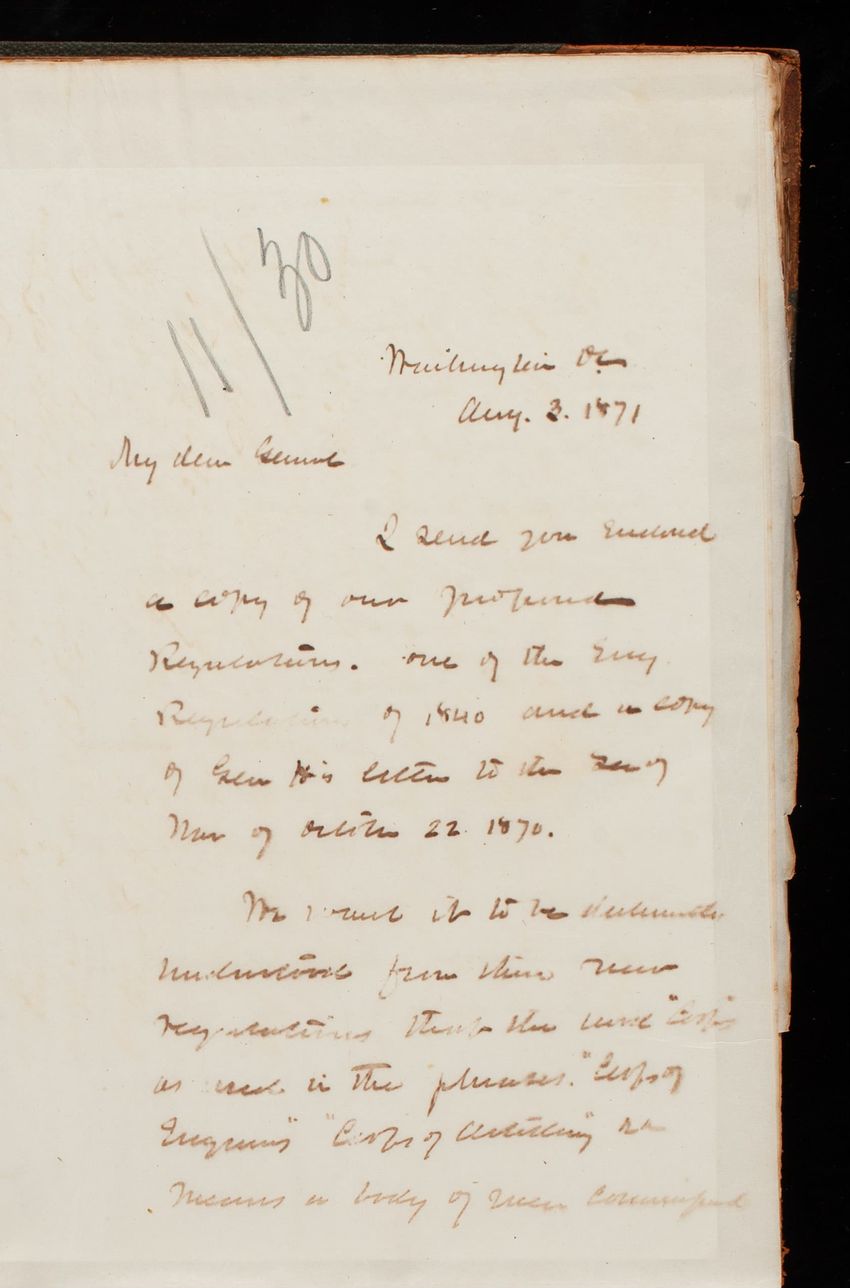 11/30
Washington DC
Aug. 3. 1871
My dear General
I send you Enclosed
a copy of our proposed
Regulations. one of the Eng
Regulations of 1840 and a copy
of Gen H's letter to the Sec of
War of October 22 1870.
We want it to be
understood from these new
regulations that the word "Corps"
as used in the phrases. "Corps of
Engineers" "Corps of Artillery"
means a body of men